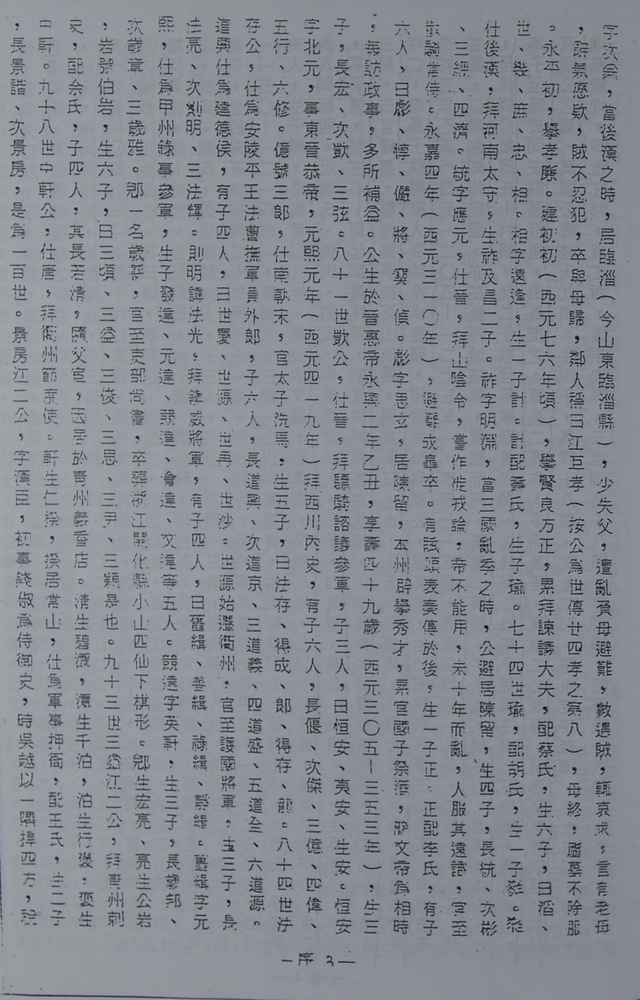 字次翁，當後漢之時，居臨淄（今山東臨淄縣），少失父，遭亂負母避難，數遇賊，輒哀求，言有老母
，辭氣愿款，賊不忍犯，卒與母歸，鄰人稱曰江巨孝（按公為世傳廿四孝之第八），母終，廬墓不除服
。永平初，舉孝廉。建初初（西元七六年頃），舉賢良方正，累拜諫議大夫，配蔡氏，生六子，曰滔、
世、幾、庶、忠、相。相字遠逢，生一子計。計配蔣氏，生子瑜。七十四世瑜，配胡氏，生一子蕤。蕤
仕後漢，拜河南太守，生祚及昌二子。祚字明淵，當三國亂季之時，公避居陳留，生四子，長統、次彬
、三經、四濟。統字應元，仕晉，拜山陰令，嘗作徙戎論，帝不能用，未十年而亂，人服其遠識，官至
散騎常侍。永嘉四年（西元三一〇年），避難成皋卒。有賦頌表奏傳於後，生一子正。正配李氏，有子
六人，曰彪、惇、儼、將、寶、偵。彪字思玄，居陳留，本州辟舉秀才，累官國子祭酒，簡文帝為相時
，每訪政事，多所補益。公生於晉惠帝永興二年乙丑，享壽四十九歲（西元三〇五—三五三年），生三
子，長宏、次歎、三弦。八十一世歎公，仕晉，拜驃騎諮議參軍，子三人，曰恒安、夷安、生安。恒安
字北元，事東晉恭帝，元熙元年（西元四一九年）拜西川內史，有子六人，長偃、次傑、三億、四偉、
五行、六修。億號三郎，仕南朝宋，官太子洗馬，生五子，曰法存、得成、郎、得存、　。八十四世法
存公，仕為安陵平王法曹撫軍員外郎，子六人，長道興、次道京、三道義、四道盛、五道全、六道源。
道興仕為建德侯，有子四人，曰世憂、世源、世再、世妙。世源始遷衢州，官至護國將軍，生三子，長
法亮、次則明、三法輝。則明諱法光，拜龍威將軍，有子四人，曰舊緝、善緝、祿緝、　緝。舊緝字元
熙，仕為甲州錄事參軍，生子發達、元達、　達、會達、文達等五人。　遠字英軒，生三子，長歲邦、
次歲章、三歲雅。　一名歲　，官至吏部尚書，卒葬浙江開化縣小山四仙下棋形。　生宏亮、亮生公岩
，岩號伯岩，生六子，曰三頃、三益、三俊、三思、三尹、三穎是也。九十三世三益江二公，拜青州刺
史，配余氏，子四人，其長若清，隨父官，因居於青州　香店。清生碧潭，潭生千泊，泊生行　。　生
中軒。九十八世中軒公，仕唐，拜衢州節度使。軒生仁　，　居常山，仕為軍事押衙，配王氏，生二子
，長景諧、次景房，是為一百世。景房江二公，字漢臣，初事錢俶為侍御史，時吳越以一隅捍四方，
—序3—